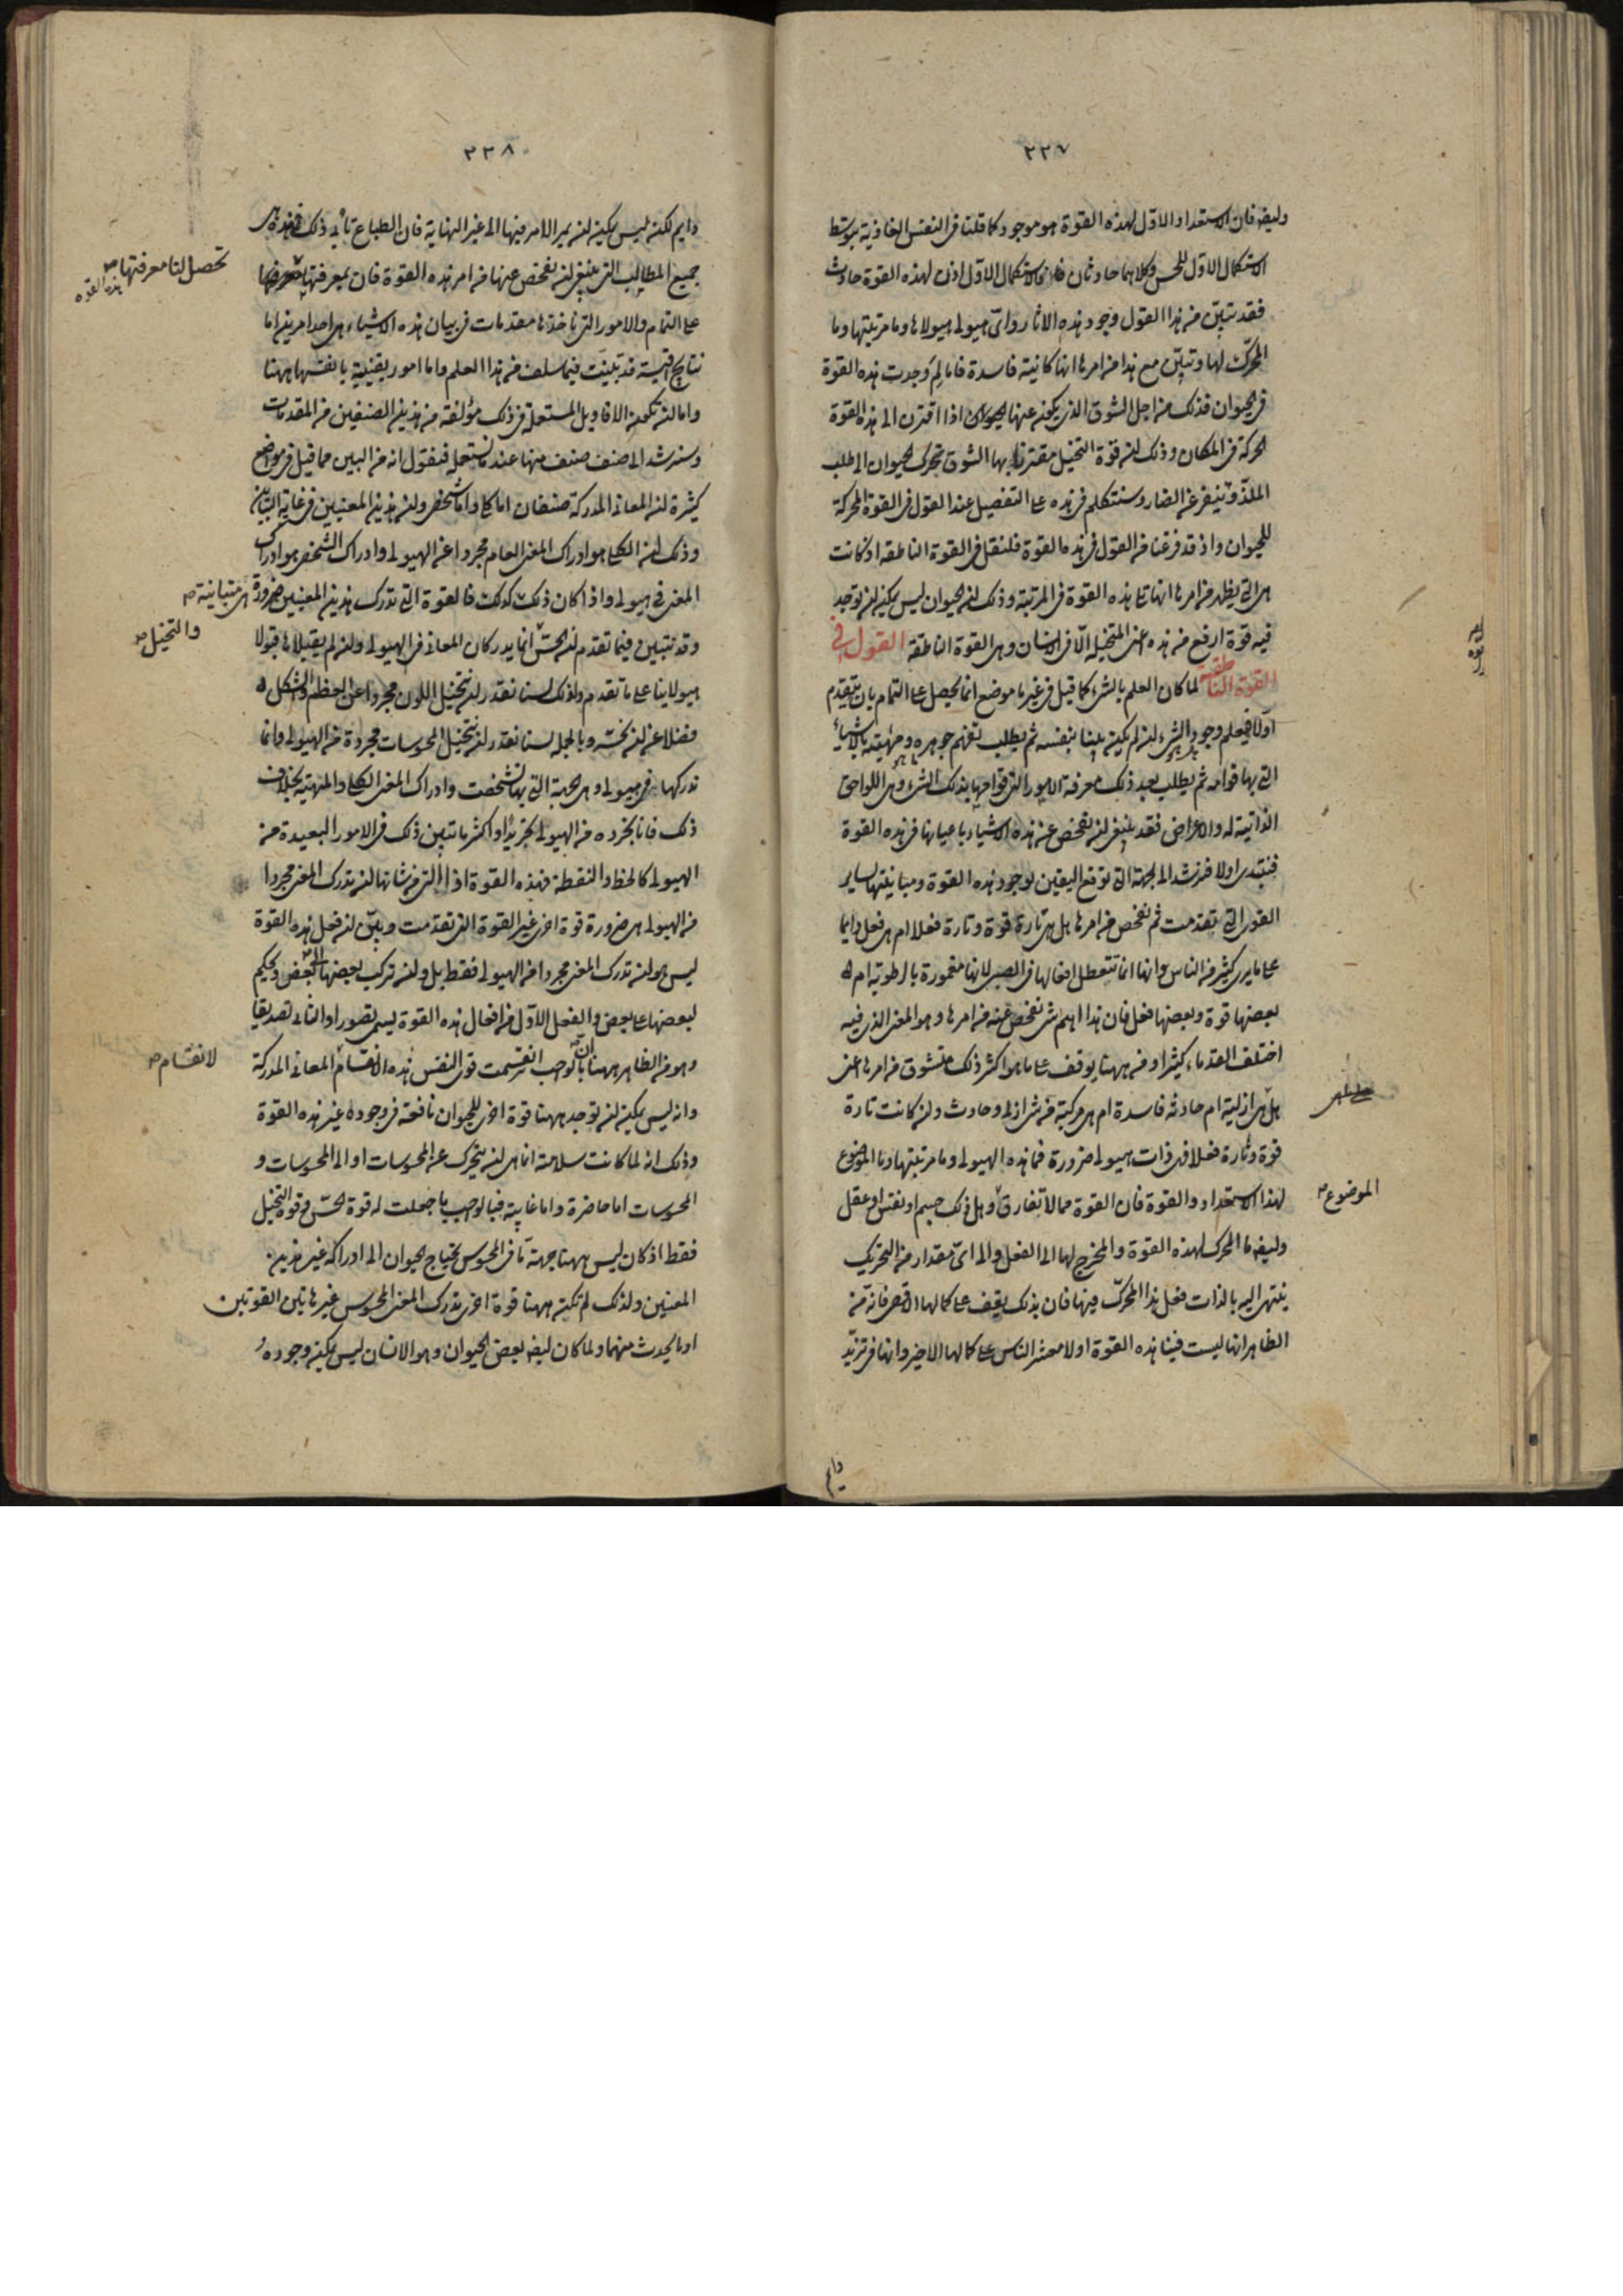 ٢٢٧
وايضا فان الاستعداد الاول لهذه القوة هو موجود كما قلنا في النفس الغاذية بتوسط
الاستكمال الاول للحس وكلاهما حادثان فالاستكمال الاول اذن لهذه القوة حادث
فقد تبين من هذا القول وجود هذه الاثار واي هيولى هيولاها وما مرتبتها وما
المحرك لها وتبين مع هذا من امرها انها كائنة فاسدة فاما لم وجدت هذه القوة
في الحيوان فذلك من اجل الشوق الذي يكون عنها للحيوان اذا اقترن الى هذه القوة
الحركة في المكان وذلك ان قوة التخيل مقترنا بها الشوق يتحرك الحيوان الى طلب
الملذ وينفر عن الضار وسنتكلم في هذه على التفصيل عند القول في القوة المحركة
للحيوان واذ قد فرغنا من القول في هذه القوة فلنقل في القوة الناطقة اذ كانت
هي التي يظهر من امرها انها تتلو هذه القوة في المرتبة وذلك ان الحيوان ليس يمكن ان توجد
فيه قوة ارفع من هذه اعني المتخيلة الا في الانسان وهي القوة الناطقة القول في
القوة الناطقة لما كان العلم بالشيء كما قيل في غير ما موضع انما يحصل على التمام بان يتقدم
اولا فيعلم وجود الشيء ان لم يكن بينا بنفسه ثم يطلب تفهم جوهره وماهيته بالاشياء
التي بها قوامه ثم يطلب بعد ذلك معرفة الامور التي قوامها بذلك الشيء وهي اللواحق
الذاتية له والاعراض فقد ينبغي ان نفحص عن هذه الاشياء باعيانها في هذه القوة
فنبتدي اولا فنرشد الى الجهة التي توقع اليقين بوجود هذه القوة ومباينتها لساير
القوى التي تقدمت ثم نفحص من امرها هل هي تارة قوة وتارة فعلا ام هي فعل دايما
على ما يرى كثير من الناس وانها انما تتعطل افعالها في الصبى لانها مغمورة بالرطوبة ام
بعضها قوة وبعضها فعل فان هذا اهم شيء نفحص عنه من امرها وهو المعنى الذي فيه
اختلف القدماء كثيرا ومن ههنا يوقف على ما هو اكثر ذلك متشوق من امرها اعني
هل هي ازلية ام حادثة فاسدة ام هي مركبة من شيء ازلي وحادث وان كانت تارة
قوة وتارة فعلا فهي ذات هيولى ضرورة فما هذه الهيولى وما مرتبتها وما الموضوع
لهذا الاستعداد والقوة فان القوة مما لا تفارق وهل ذلك جسم او نفس او عقل
الموضوع
وايضا ما المحرك لهذه القوة والمخرج لها الى الفعل والى اي مقدار من التحريك
ينتهي اليه بالذات فعل هذا المحرك فينا فان بذلك يوقف على كمالها الاقصى فانه من
الظاهر انها ليست فينا هذه القوة اولا معشر الناس على كمالها الاخير وانها في تزيد
دايم
٢٢٨
دايم لكنه ليس يمكن ان يمر الامر فيها الى غير النهاية فان الطباع تأبى ذلك فهذه هي
جميع المطالب التي ينبغي ان نفحص عنها من امر هذه القوة فان بمعرفتها
تحصل لنا معرفتها هذه القوة
على التمام والامور التي ناخذها مقدمات في بيان هذه الاشياء هي احد امرين اما
نتايج اقيسة قد تبينت فيما سلف من هذا العلم واما امور يقينية بانفسها ههنا
واما ان تكون الاقاويل المستعملة في ذلك مؤلفة من هذين الصنفين من المقدمات
وسنرشد الى صنف صنف منها عند ما نستعمله فنقول انه من البين مما قيل في مواضع
كثيرة ان المعاني المدركة صنفان اما كلي واما شخص وان هذين المعنيين في غاية التباين
وذلك ان الكلي هو ادراك المعنى العام مجردا عن الهيولى وادراك الشخص هو ادراك
المعنى في هيولى واذا كان ذلك كذلك فالقوة التي تدرك هذين المعنيين ضرورة هي متباينة
وقد تبين فيما تقدم ان الحس انما يدركان المعاني في الهيولى وان لم يقبلاها قبولا
والتخيل
هيولانيا على ما تقدم ولذلك لسنا نقدر ان نتخيل اللون مجردا عن العظم والشكل
فضلا عن ان نحسه وبالجملة لسنا نقدر ان نتخيل المحسوسات مجردة من الهيولى وانما
ندركها في هيولى وهي الجهة التي بها تشخصت وادراك المعنى الكلي والمهية بخلاف
ذلك فانا نجرده من الهيولى تجريدا واكثر ما تبين ذلك في الامور البعيدة من
الهيولى كالخط والنقطة فهذه القوة اذا التي من شانها ان تدرك المعنى مجردا
من الهيولى هي ضرورة قوة اخرى غير القوة التي تقدمت وبين ان فعل هذه القوة
ليس هو ان تدرك المعنى مجردا من الهيولى فقط بل وان تركب بعضها الى بعض وتحكم
لبعضها على بعض والفعل الاول من افعال هذه القوة يسمى تصورا والثاني تصديقا
وهو من الظاهر ههنا ان بالواجب انقسمت قوى النفس هذه الانقسام المعاني المدركة
لانقسام
وانه ليس يمكن ان توجد ههنا قوة اخرى للحيوان نافعة في وجوده غير هذه القوة
وذلك انه لما كانت سلامته انما هي ان يتحرك عن المحسوسات او الى المحسوسات و
المحسوسات اما حاضرة واما غايبة فبالواجب ما جعلت له قوة الحس وقوة التخيل
فقط اذ كان ليس ههنا جهة ما في المحسوس يحتاج الحيوان الى ادراكه غير هذين
المعنيين ولذلك لم تكن ههنا قوة اخرى تدرك المعنى المحسوس غير هاتين القوتين
او ما يحدث منهما ولما كان ايضا بعض الحيوان وهو الانسان ليس يمكن وجوده